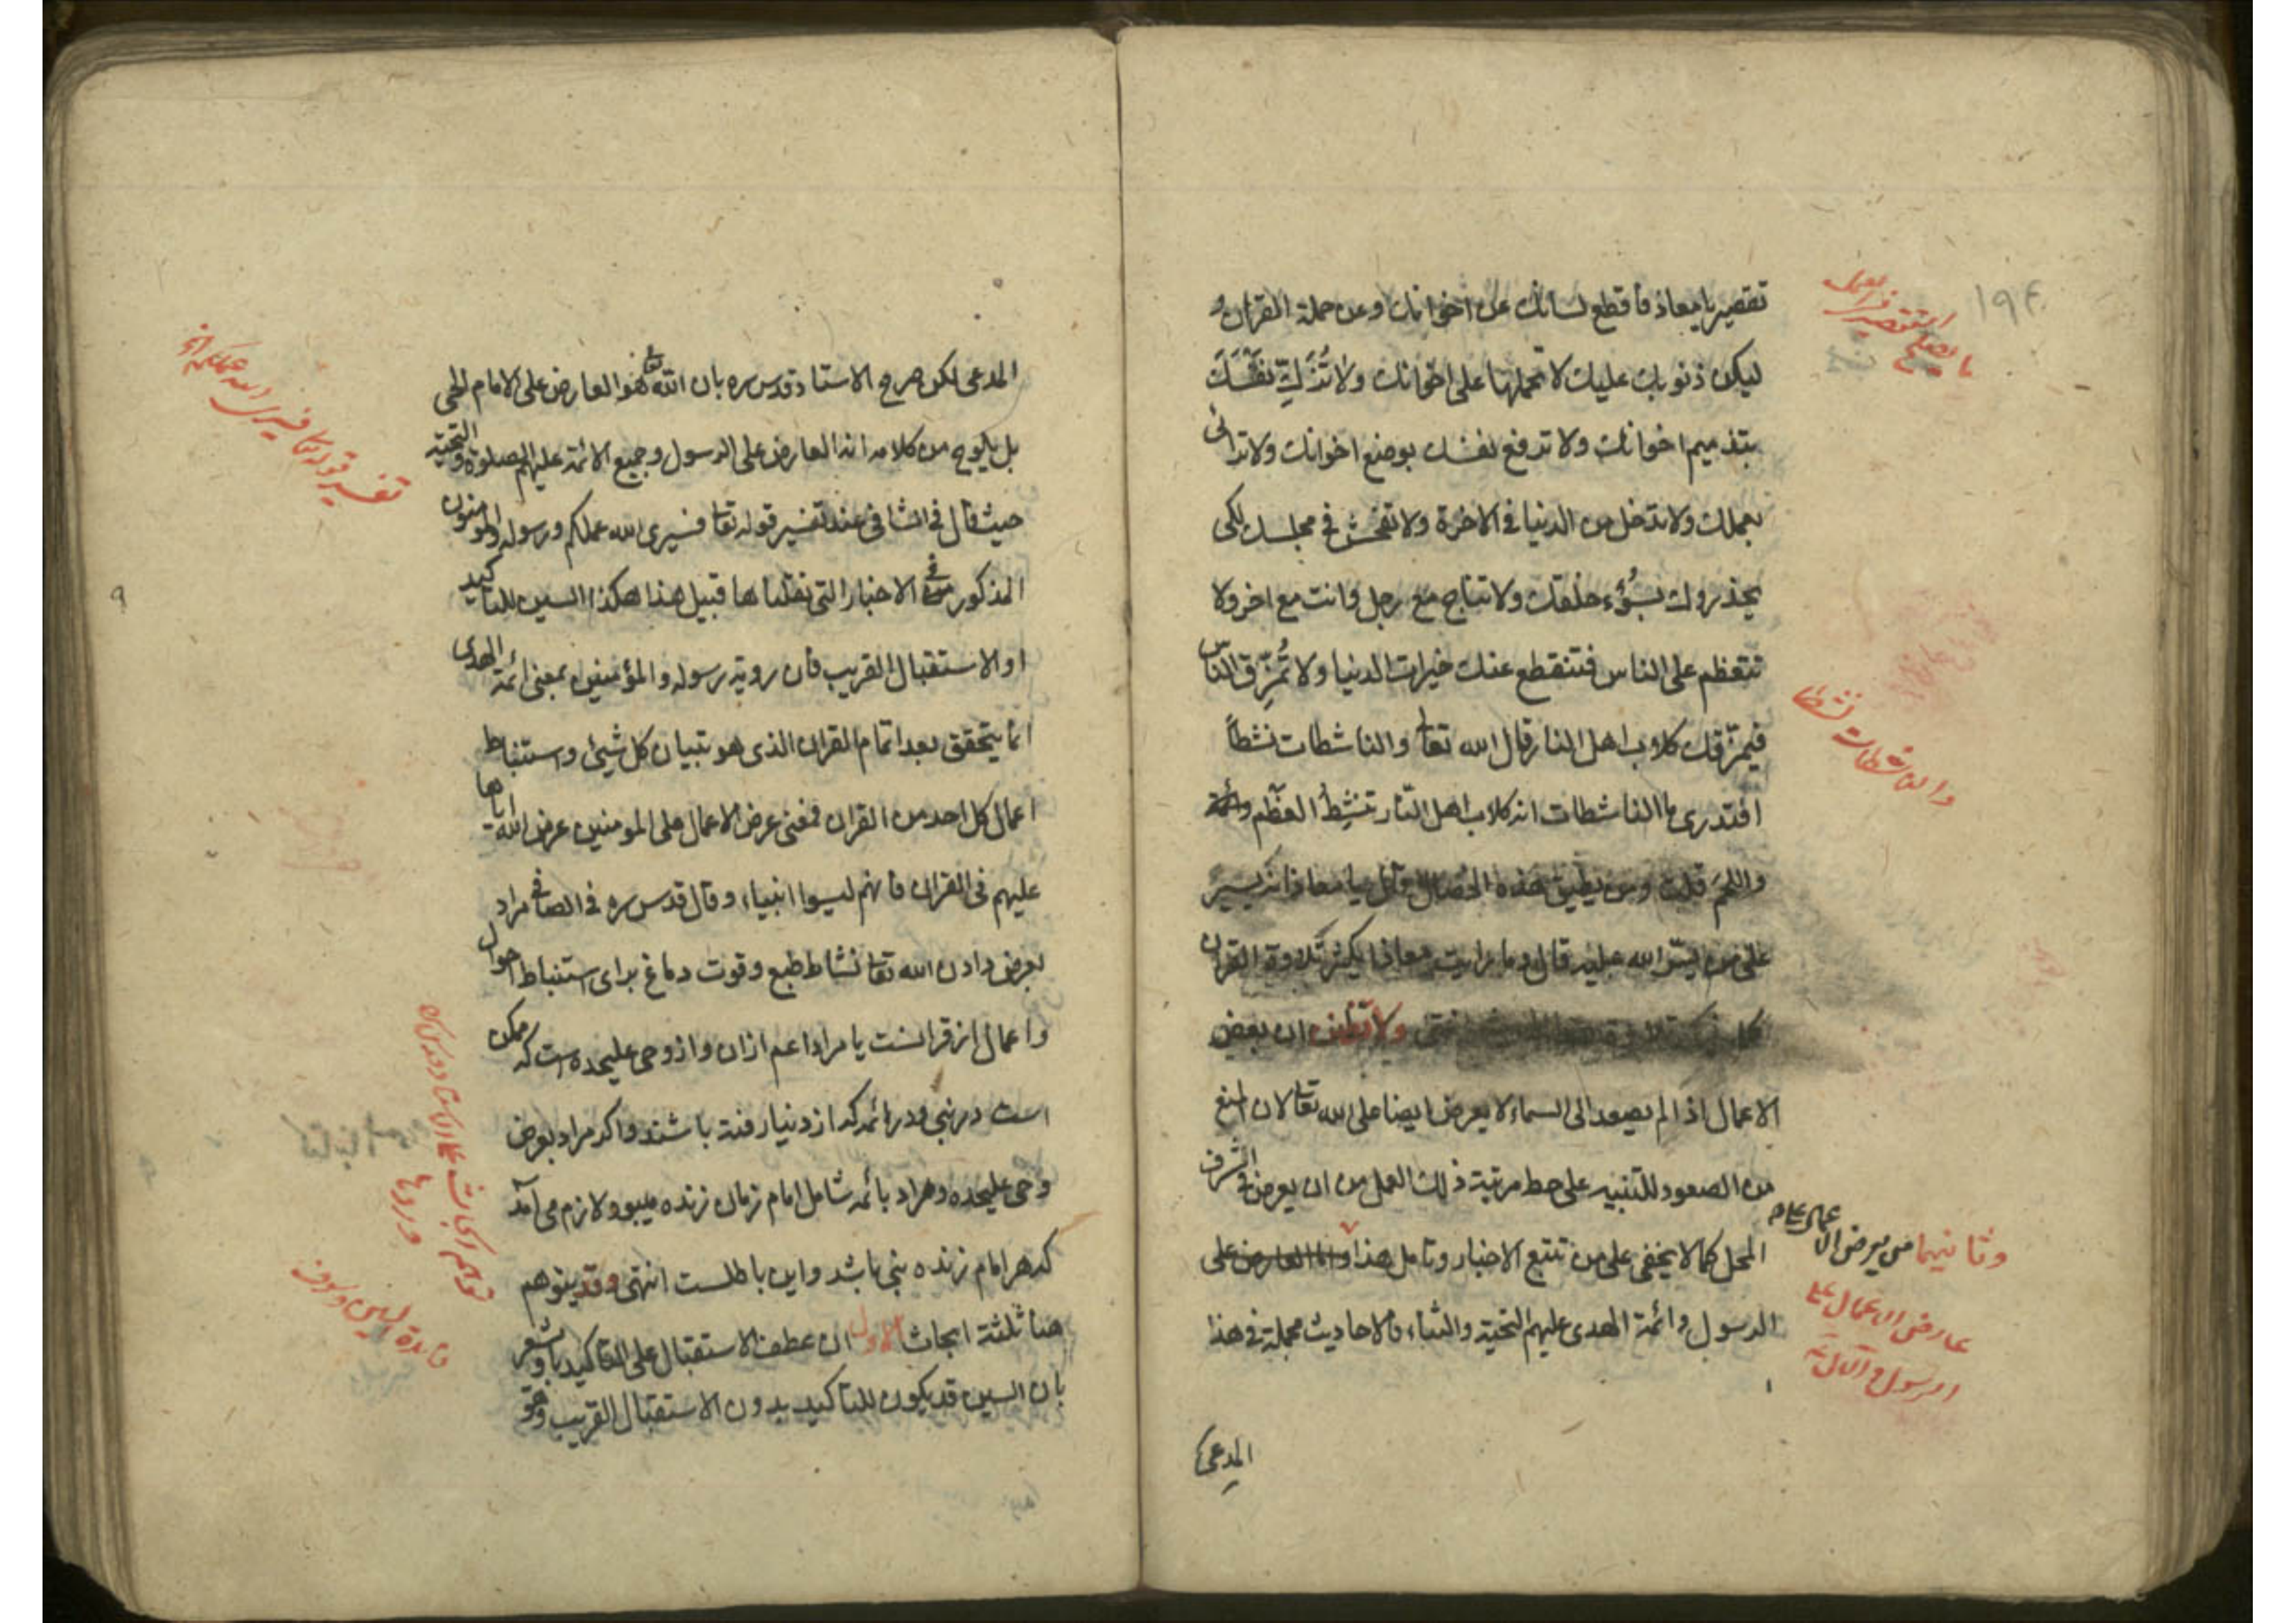 تقصير يا معاذ فاقطع لسانك عن اخوانك وعن حملة القران و
ليكن ذنوبك عليك لا تحملها على اخوانك ولا تُزَكِّ نفسَكَ
بتذميم اخوانك ولا ترفع نفسك بوضع اخوانك ولا ترائى
بعملك ولا تدخل من الدنيا فى الاخرة ولا تفحش فى مجلسك لكى
يحذروك بسُوْءِ خلقك ولا تناج مع رجل وانت مع اخر ولا
تتعظم على الناس فتنقطع عنك خيرات الدنيا ولا تُمزّق الناس
فيمزّقك كلاب اهل النار قال الله تعالى والناشطات نشطاً
افتدرى ما الناشطات انه كلاب اهل النّار تنشِطُ العظم
واللحمَ قلت ومن يطيق هذه الخصال قال يا معاذ انه يسير
على من يسّر الله عليه قال وما رايت معاذا يكثر تلاوة القران
كما يكثر تلاوة هذا الحديث انتهى ولا تظنن ان بعض
الاعمال اذا لم يصعد الى السماء لا يعرض ايضا على الله تعالى لان المنع
من الصعود للتنبيه على حط مرتبة ذلك العمل من ان يعرض فى اشرف
المحل كما لا يخفى على من تتبع الاخبار وتامل هذا واما العارض على
وثانيهما من يعرض الاعمال على
الرسول وائمة الهدى عليهم التحية والثناء فالاحاديث مجملة فى هذا
المدعى
والناشطات نشطا
عارض الاعمال على
الرسول و
١٩٤
المدعى لكن صرح الاستاد قدس سره بان الله تعالى هو العارض على الامام الحى
بل يلوح من كلامه انه العارض على الرسول وجميع الائمة عليهم الصلوة والتحية
حيث قال فى الشافى عند تفسير قوله تعالى فسيرى الله عملكم ورسوله والمؤمنون
المذكور فى الاخبار التى نقلناها قبيل هذا هكذا السين للتاكيد
او الاستقبال القريب فان روية رسوله والمؤمنين بمعنى ائمة الهدى
انما يتحقق بعد اتمام القران الذى هو تبيان كل شيئ واستنباط
اعمال كل احد من القران فمعنى عرض الاعمال على المومنين عرض الله اياها
عليهم فى القران فانهم ليسوا انبياء وقال قدس سره فى الصافى مراد
بعرض دادن الله تعالى نشاط طبع وقوت دماغ براى استنباط احوال
واعمال از قرانست يا مراد اعم ازان واز وحى عليحده است كه ممكن
است در نبى و در ائمه كه از دنيا رفته باشند واكر مراد بعرض
وحى عليحده و مراد بائمه شامل امام زمان زنده ميبود لازم مى آمد
كه هر امام زنده نبى باشد واين باطلست انتهى وقد يتوهم
هنا ثلثة ابحاث الاول ان عطف الاستقبال على التاكيد باو مشعر
بان السين قد يكون للتاكيد بدون الاستقبال القريب وهو
تفسير قوله تعالى فسيرى الله عملكم